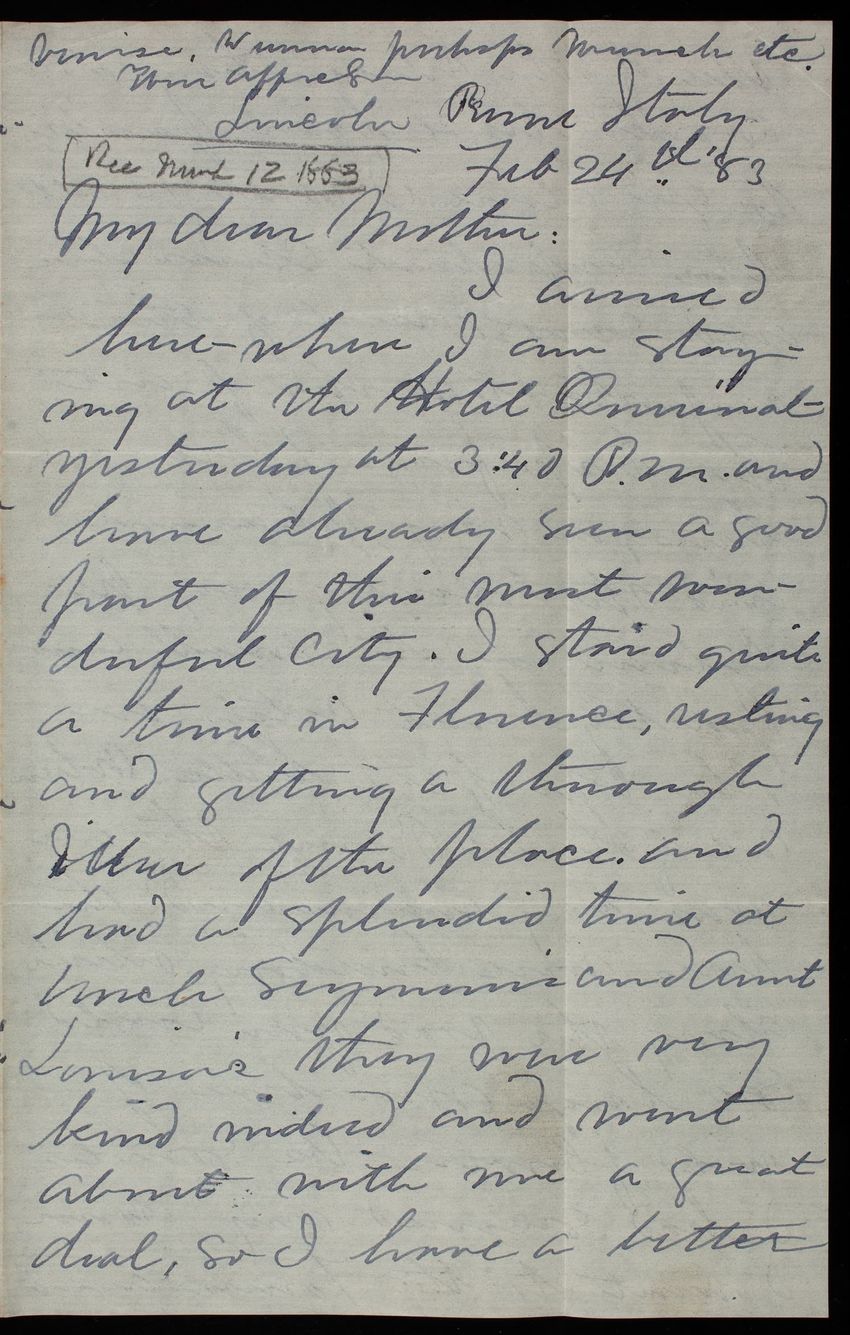 Venice, Vienna perhaps Munich etc.
Your affec Son
Lincoln
Rome Italy
Feb 24th '83
Rec March 12 1883
My dear Mother:
I arrived
here-where I am stay-
ing at the Hotel Quirinal-
yesterday at 3:40 P.M. and
have already seen a good
part of this most won-
derful City. I staid quite
a time in Florence, resting
and getting a thorough
idea of the place. and
had a splendid time at
Uncle Seymour's and Aunt
Louisa's they were very
kind indeed and went
about with me a great
deal, so I have a better